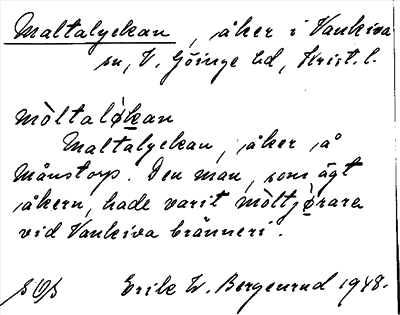 Maltalyckan, åker i Vankiva
sn, V. Göinge hd, Krist. l.
mòltaló̜kan
Maltalyckan, åker på
Månstorp. Den man, som ägt
åkern, hade varit mòltjó̜rare
vid Vankiva bränneri.
SOS Erik W. Bergenrud 1948.